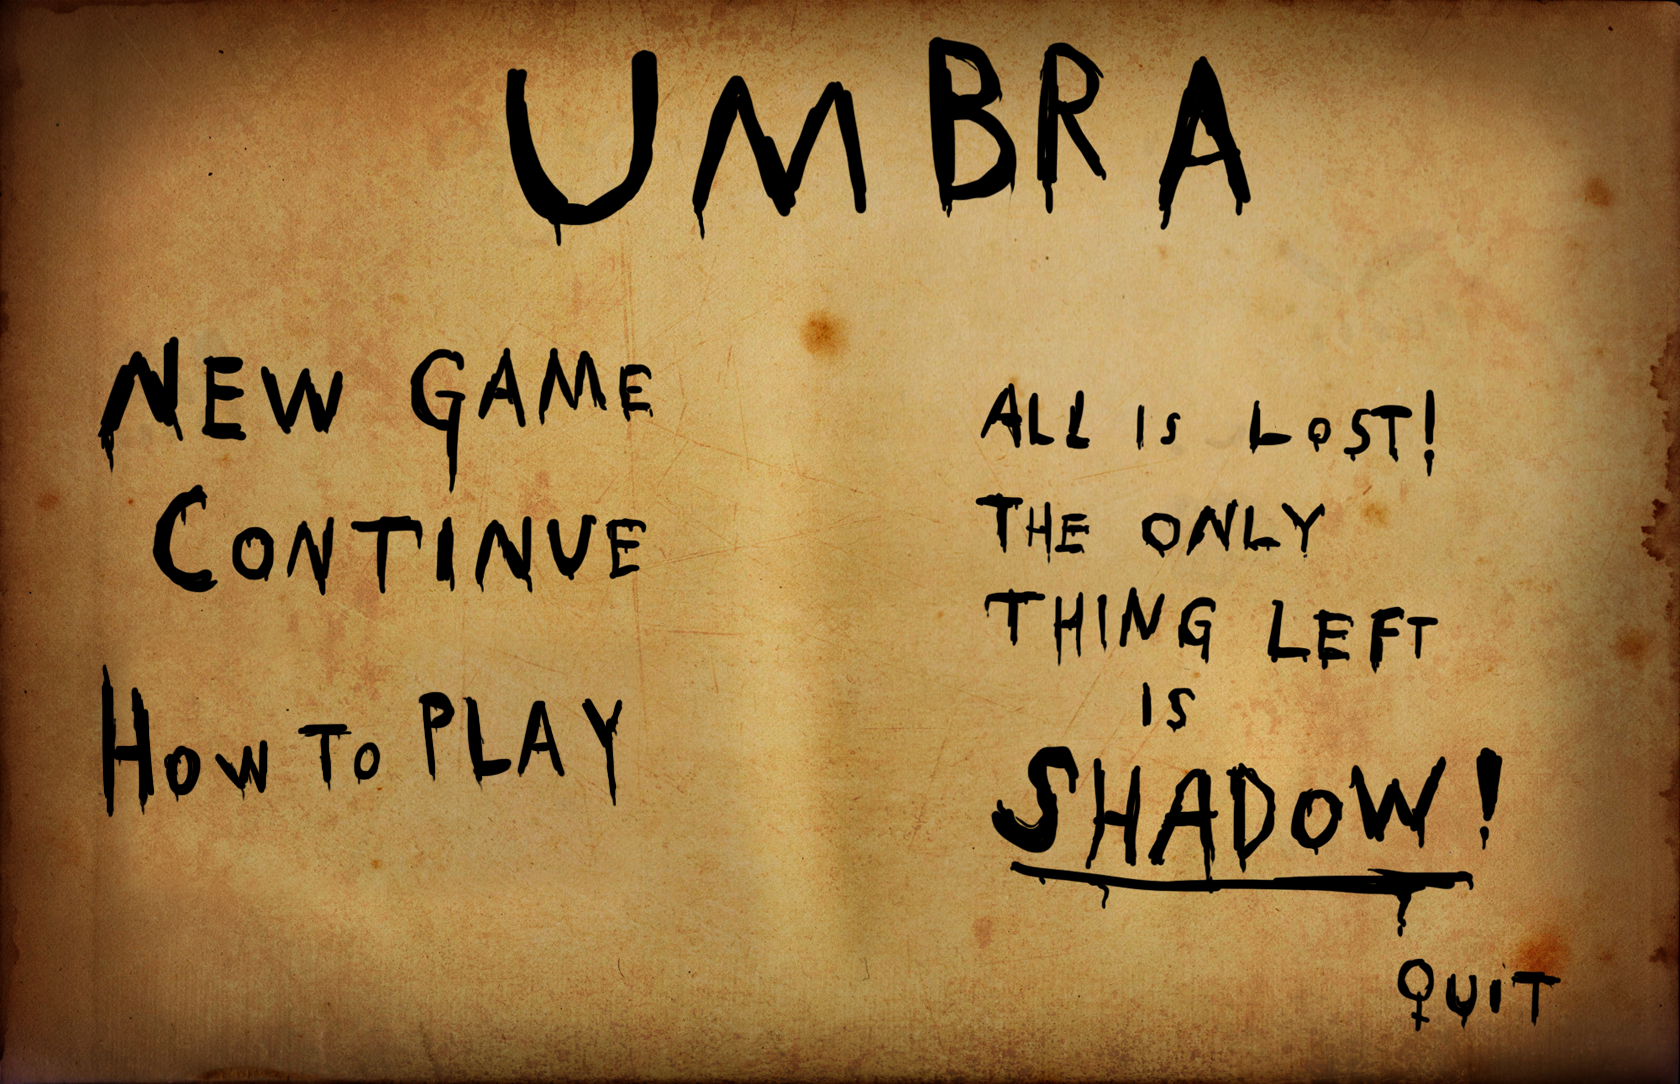 UMBRA
NEW GAME
CONTINUE
HOW TO PLAY
ALL IS LOST!
THE ONLY
THING LEFT
IS
SHADOW!
QUIT